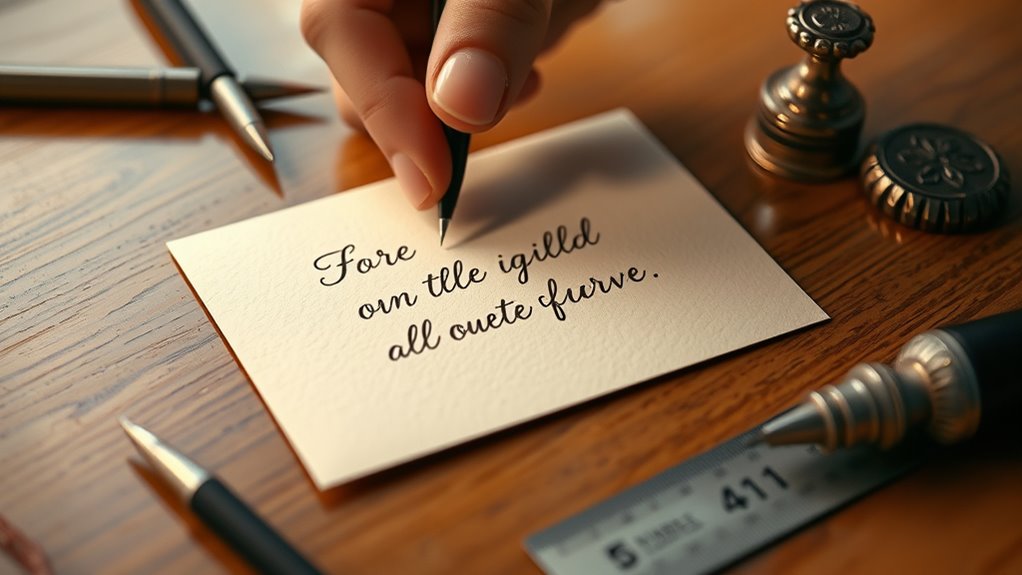 Fore
on tlle igilld
all ouete furve.
5
411